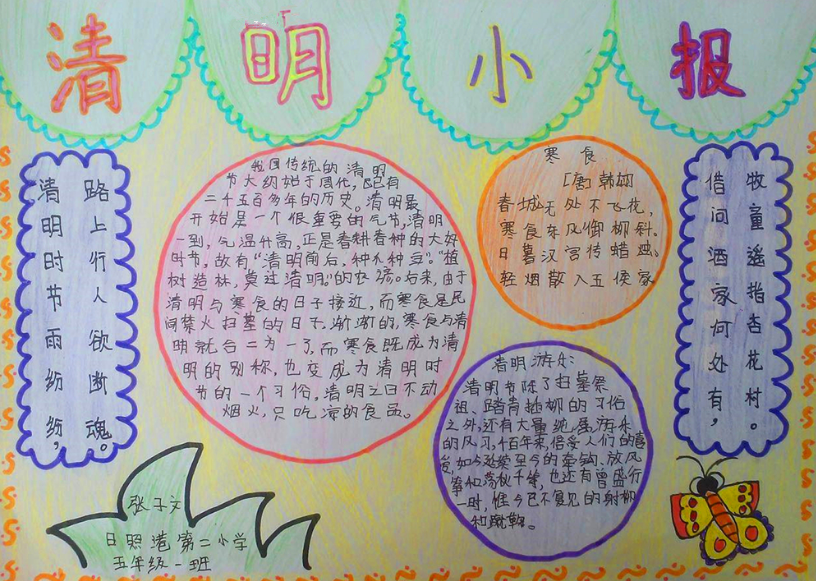 清明小报
清明时节雨纷纷,
路上行人欲断魂。
我国传统的清明
节大约始于周代,已有
二千五百多年的历史。清明最
开始是一个很重要的气节,清明
一到,气温升高,正是春耕春种的大好
时节,故有“清明前后,种瓜种豆。”“植
树造林,莫过清明。”的农谚。后来,由于
清明与寒食的日子接近,而寒食是民
间禁火扫墓的日子,渐渐的,寒食与清
明就合二为一了,而寒食既成为清
明的别称,也变成为清明时
节的一个习俗,清明之日不动
烟火,只吃凉的食品。
寒食
[唐]韩
春城无处不飞花,
寒食东风御柳斜。
日暮汉宫传蜡烛。
轻烟散入五侯家
清明游乐:
清明节除了扫墓祭
祖、踏青插柳的习俗
之外,还有大量绝属游乐
的风习,千百年来,倍受人们的喜
爱,如今延续至今的牵钩、放风
筝和荡秋千等,也还有曾盛行
一时,惟今已不复见的射柳
和蹴鞠。
借问酒家何处有,
牧童遥指杏花村。
张子文
日照港第二小学
五年级一班